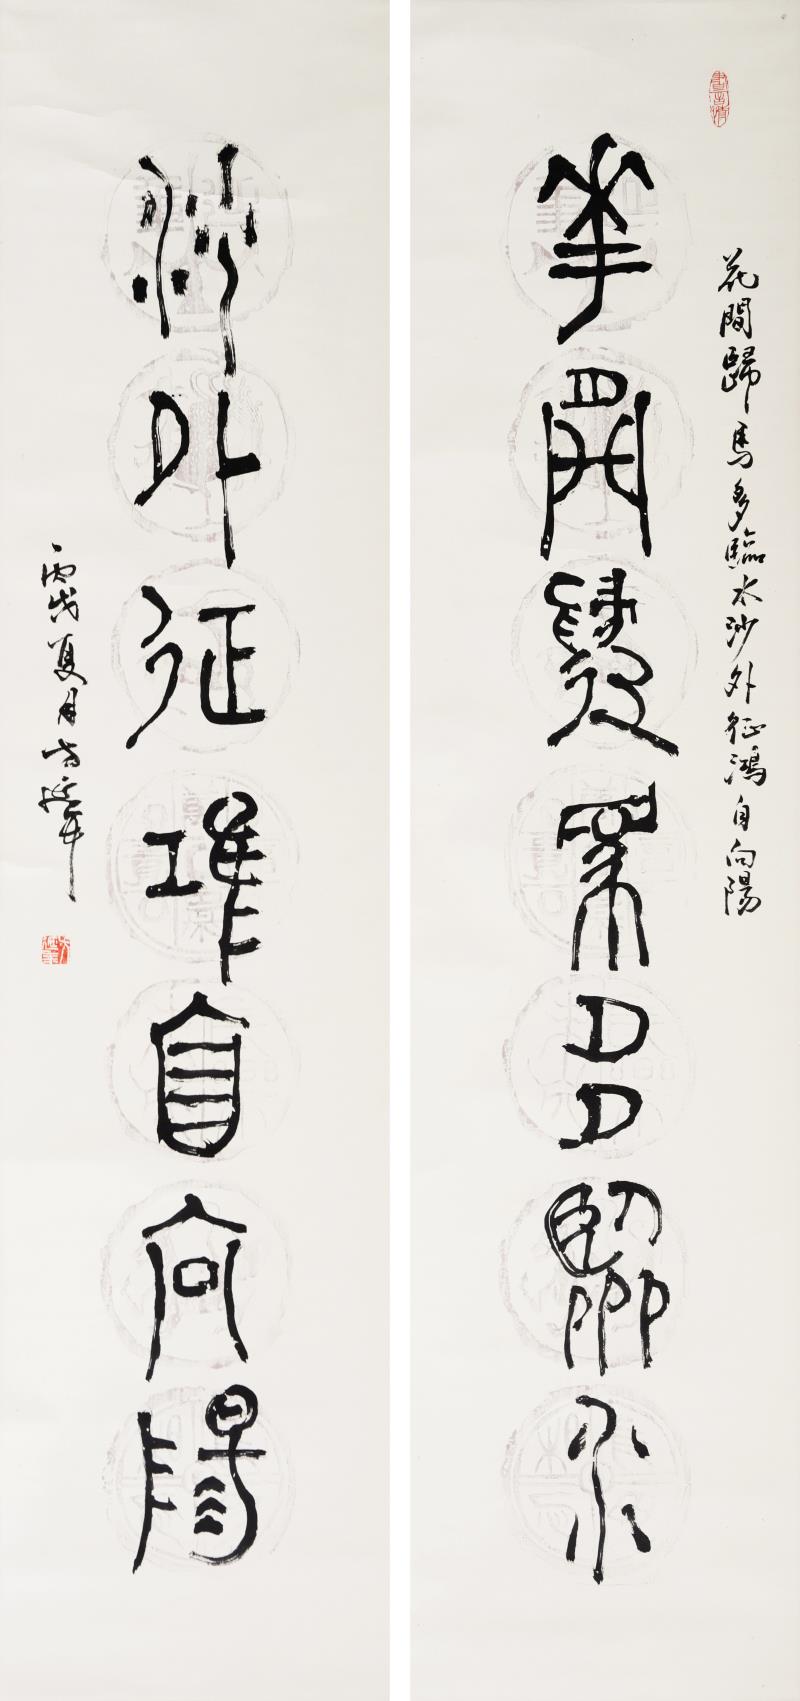 花間歸馬多臨水沙外征鴻自向陽
華間歸馬多臨水
沙外征鴻自向陽
丙戌夏月